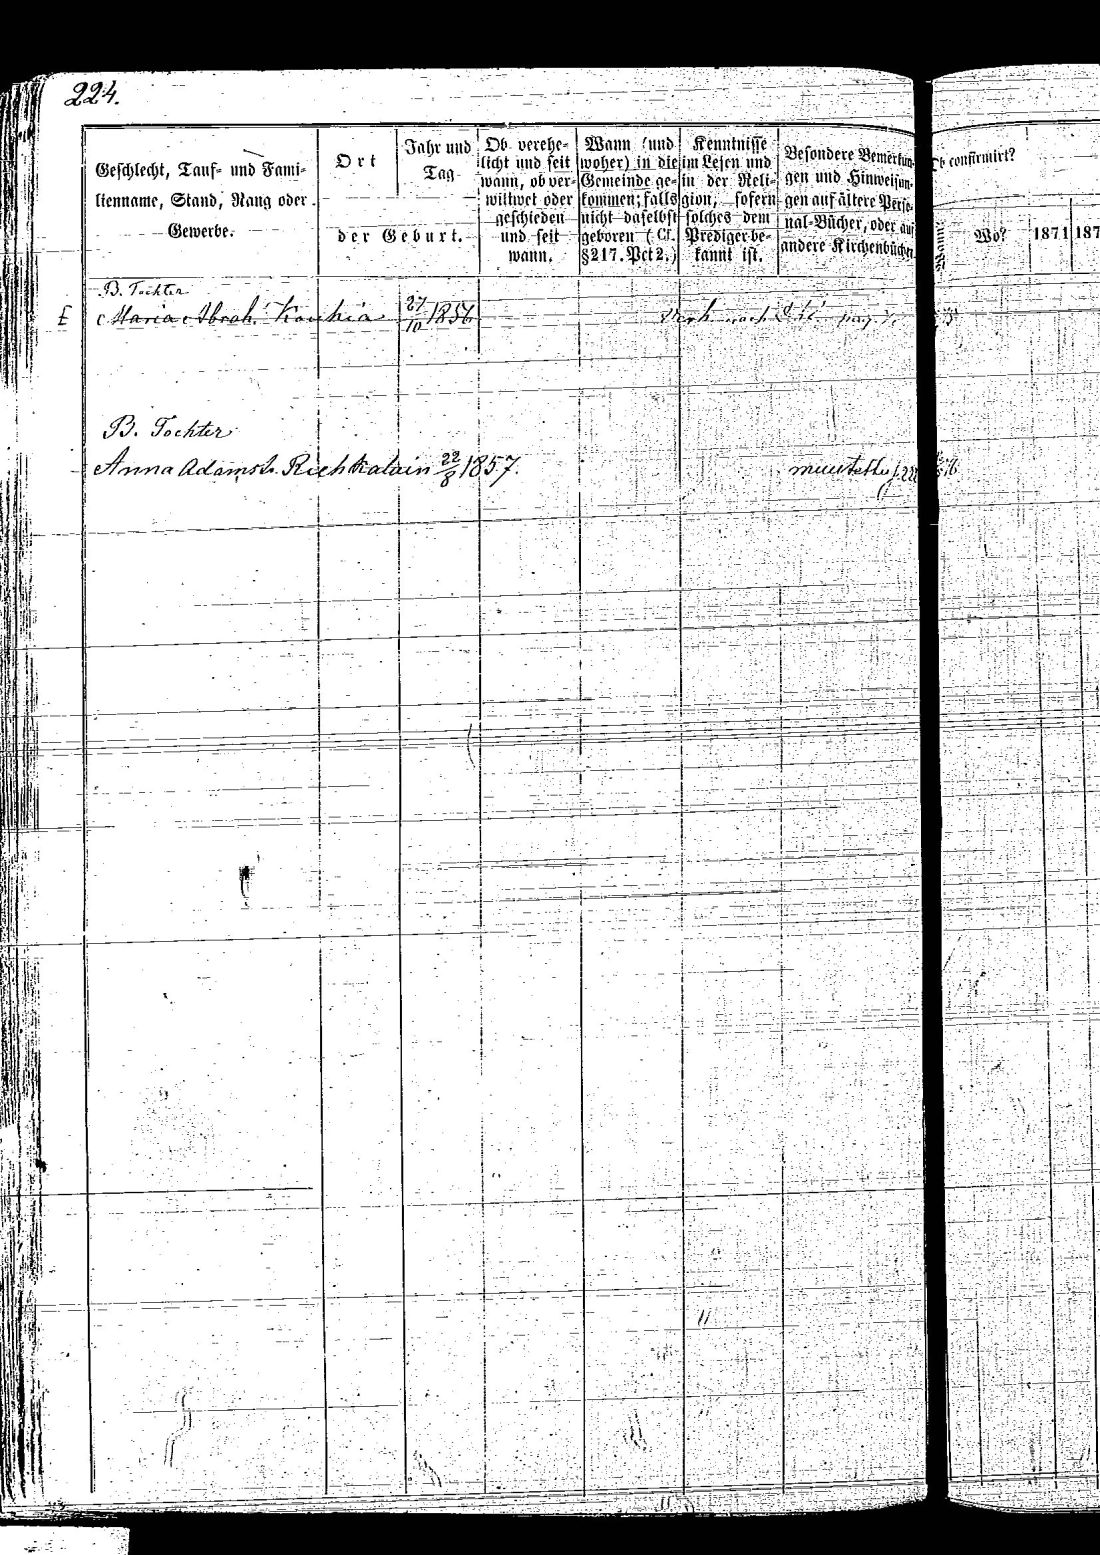 224.
Geschlecht, Tauf- und Fami-
lienname, Stand, Rang oder
Gewerbe.
Ort
Jahr und
Tag
der Geburt.
Ob verehe-
licht und seit
wann, ob ver-
wittwet oder
geschieden
und seit
wann.
Wann (und
woher) in die
Gemeinde ge-
kommen; falls
nicht daselbst
geboren (Cf.
§ 217. Pct 2.)
Kenntnisse
im Lesen und
in der Reli-
gion, sofern
solches dem
Prediger be-
kannt ist.
Besondere Bemerkun-
gen und Hinweisun-
gen auf ältere Perso-
nal-Bücher, oder auf
andere Kirchenbücher
Ob confirmirt?
Wo?
1871
187
B. Tochter
£ Maria Abrah. Kauhia 27/10 1856
B. Tochter
Anna Adamst. Riehkalain 22/8 1857.